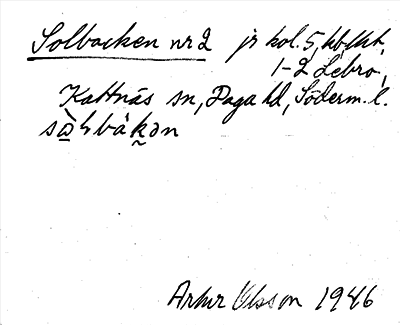 Solbacken nr 2 jr kol. 5, hb, lht,
1-2 Lebro,
Kattnäs sn, Daga hd, Söderm. l.
sɷ̀ɬbàkən
Artur Olsson 1946